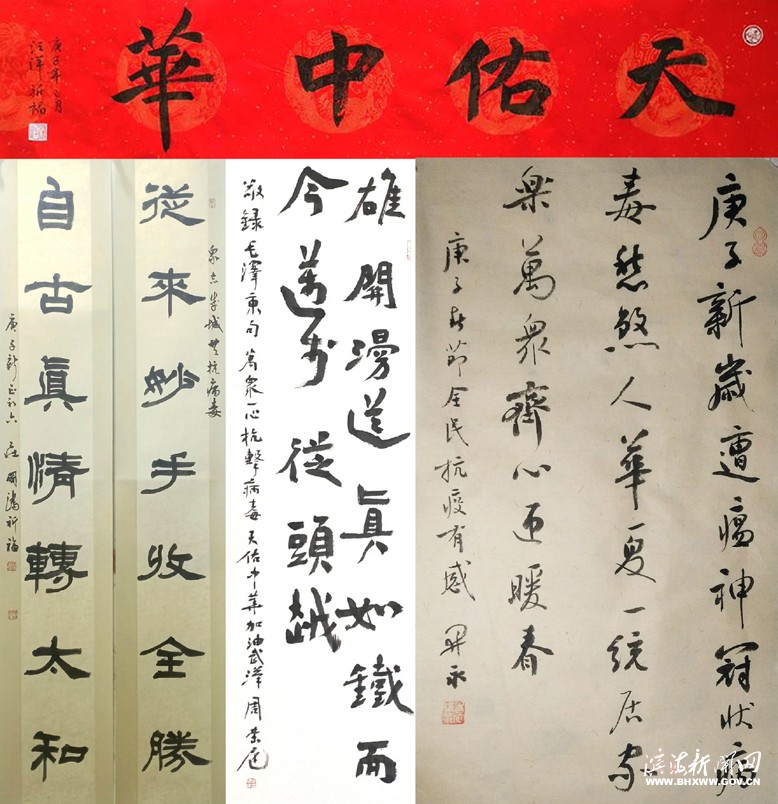 天佑中華
庚子年正月
祈福
從來妙手收全勝
衆志成城共抗病毒
自古眞情轉太和
庚子新正初六
祈福
雄開漫道眞如鐵而
今邁步從頭越
敬録毛澤東句萬衆一心抗擊病毒天佑中華加油武漢周
庚子新歲遭瘟神冠狀病
毒愁煞人華夏一統居家
樂萬衆齊心迎暖春
庚子春節全民抗疫有感
滨海新闻网
WWW.BHXWW.GOV.CN